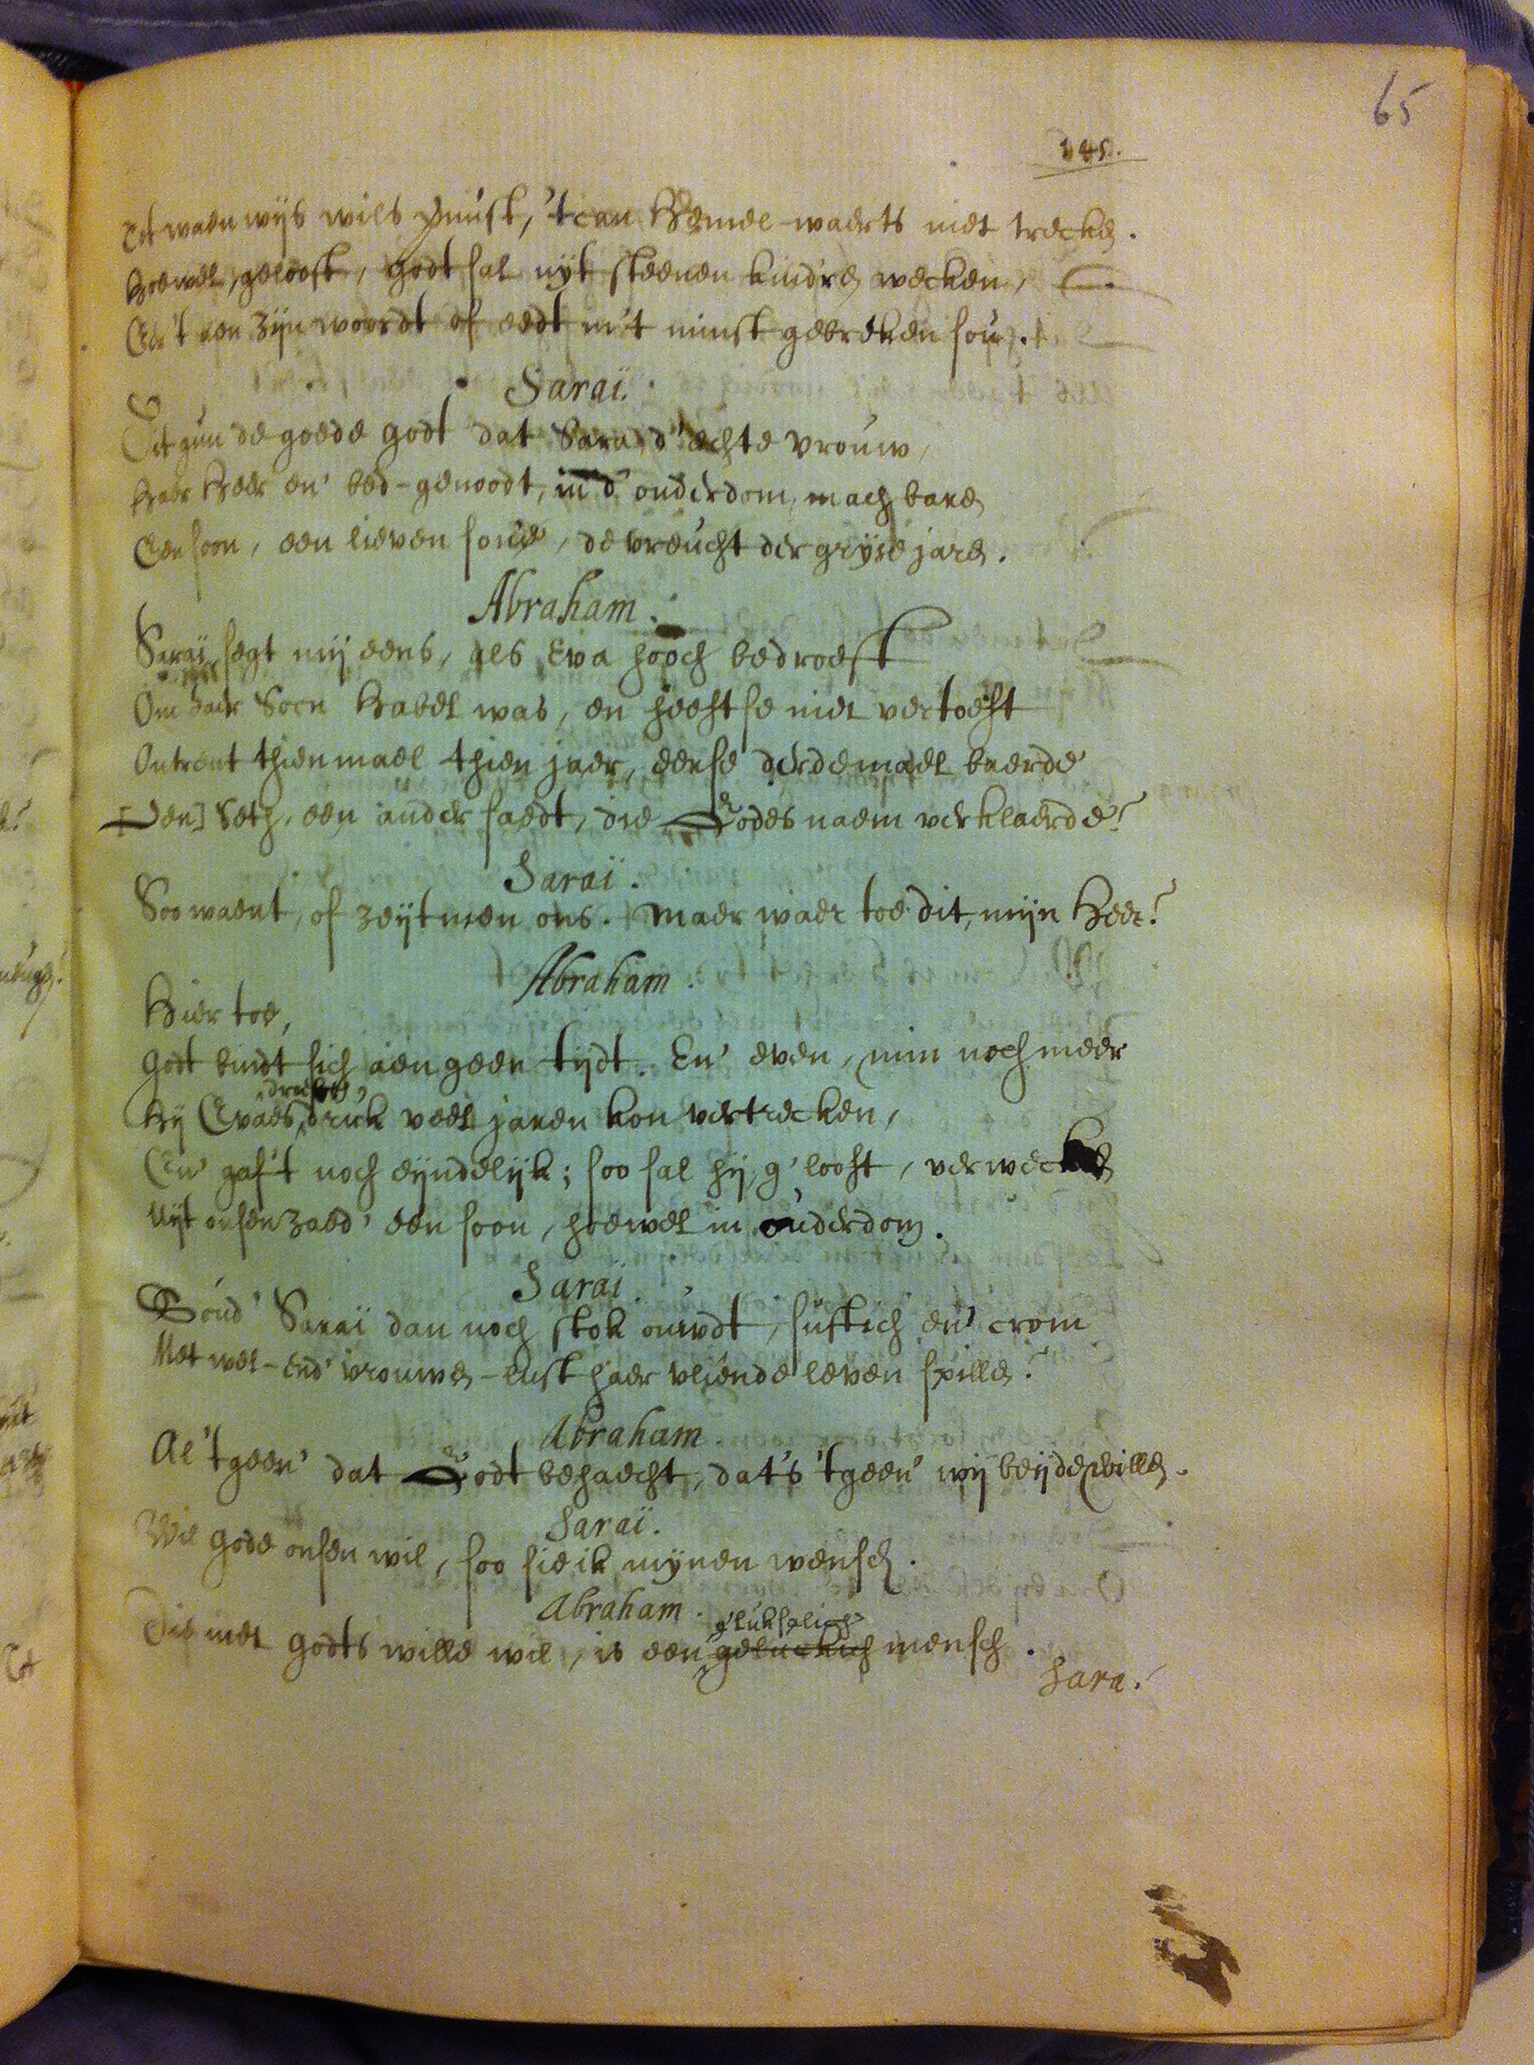 65
145.
Dit waenwijs wils gunst, 't can Hemel-waerts niet trecken.
Hoewel, gelooft, godt sal uijt steenen kindren wecken,
Eer 't aen zijn woordt of eedt in 't minst gebreken sou.
Saraï.
Dit gun de goede godt dat Sara, d' echte vrouw,
Haer Heer en' bed-genoodt, in d' ouderdom, mach baren
Een soon, een lieven soone, de vreucht der grijse jaren.
Abraham.
Saraï, segt mij eens, als Eva hooch bedroeft
Om haer Soen Habel was, en heeftse niet vertoeft
Ontrent thienmael thien jaer, eerse derdemael baerde
[Den] Seth, een ander saedt, die Godes naem verklaerde?
Saraï.
Soo waent, of zeijt men ons. Maer waer toe dit, mijn Heer?
Abraham.
Hier toe,
Godt bindt sich aen geen tijdt. En' even, min noch meer
Hij Evaes druk veel jaren kon vertrecken,
En' gaf't noch eijndelijk; soo sal hij, g'looft, verwecken
Uijt onsen zaed' een soon, hoewel in ouderdom.
Saraï.
Soud' Saraï dan noch stok ouwdt, suftich en' crom
Met wel-end' vrouwen-lust haer vliende leven spillen?
Abraham
Al 'tgeen' dat Godt behaecht, dat's 'tgeen' wij beijde willen.
Saraï.
Wil gode onsen wil, soo sie ik mijnen wensch.
Abraham.
glukselich
Die met godts wille wil, is een geluckich mensch.
Sara.